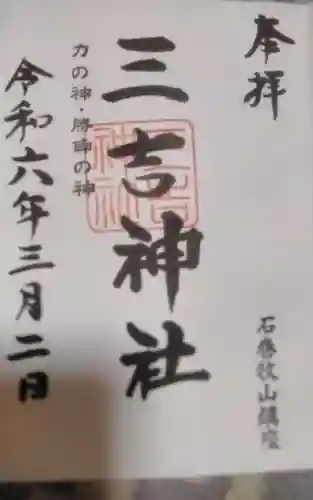 奉拝
石巻牧山鎮座
三吉神社
力の神・勝師の神
令和六年三月二日